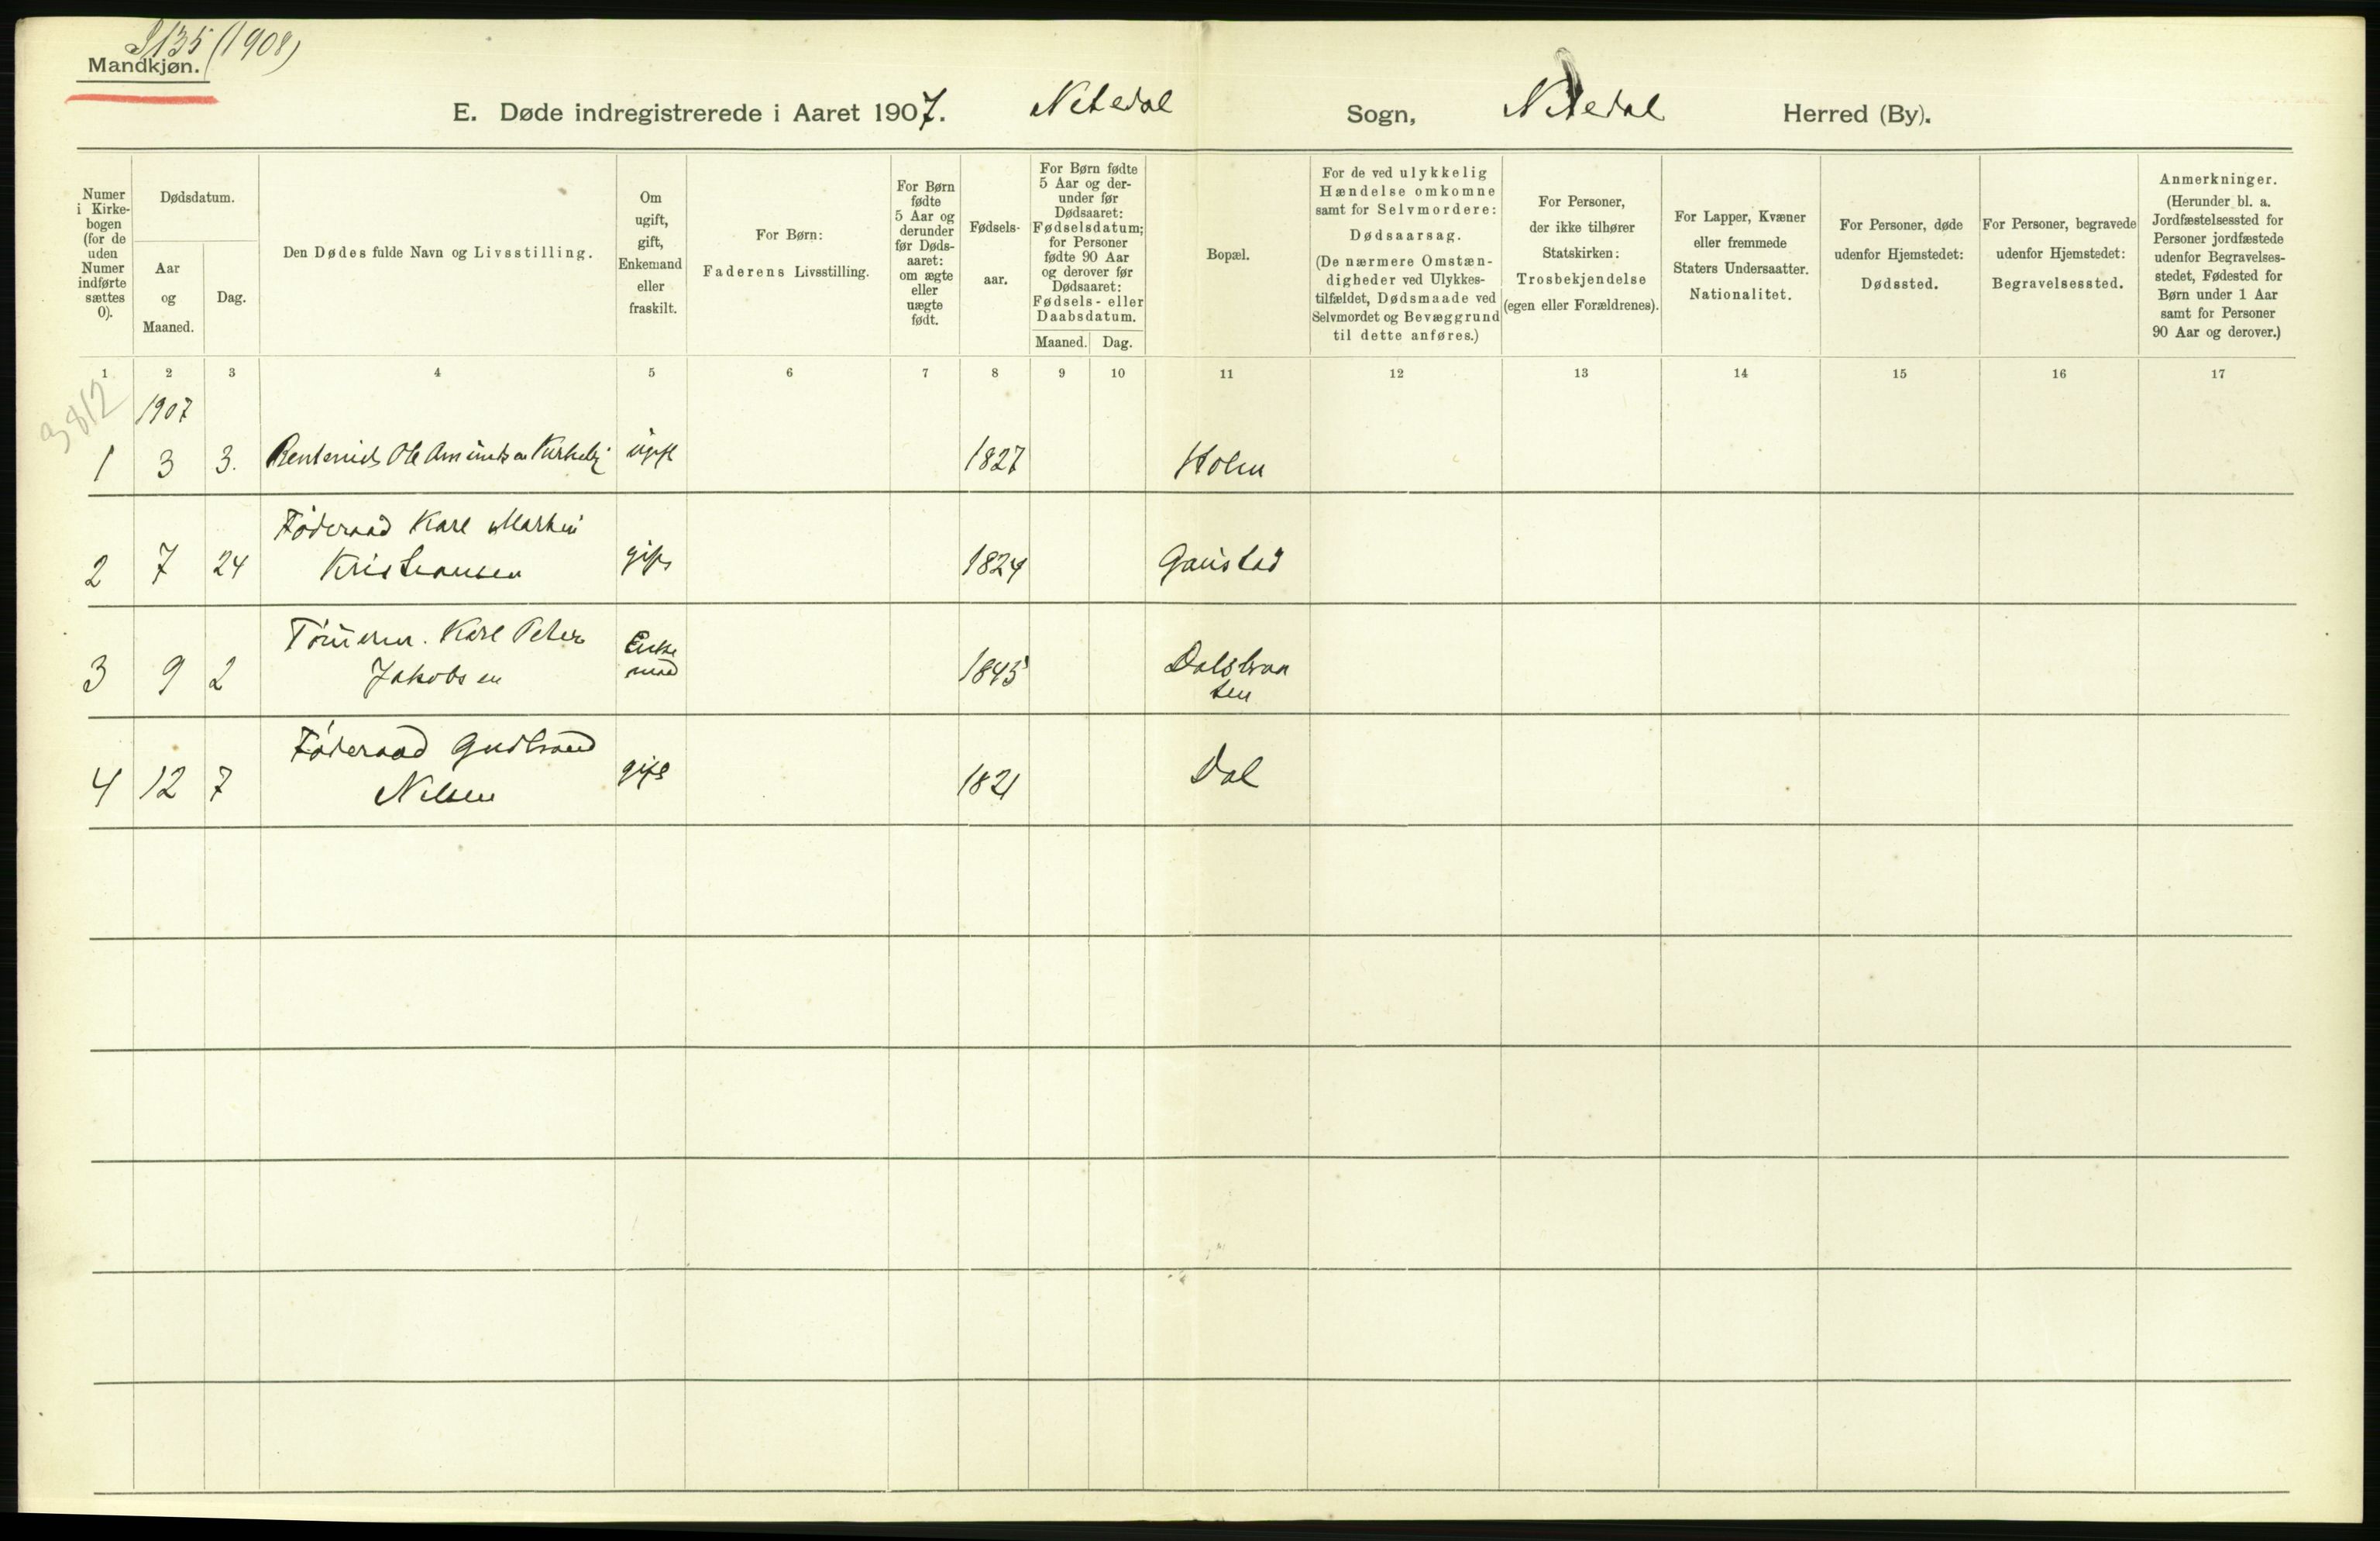 S135 (1908)
Mandkjøn.
E. Døde indregistrerede i Aaret 1907. Nitedal Sogn, Nitedal Herred (By).
Numer
i Kirke-
bogen
(for de
uden
Numer
indførte
sættes
0).
Dødsdatum.
Aar
og
Maaned.
Dag.
Den Dødes fulde Navn og Livsstilling.
Om
ugift,
gift,
Enkemand
eller
fraskilt.
For Børn:
Faderens Livsstilling.
For Børn
fødte
5 Aar og
derunder
før Døds-
aaret:
om ægte
eller
uægte
født.
Fødsels-
aar.
For Børn fødte
5 Aar og der-
under før
Dødsaaret:
Fødselsdatum;
for Personer
fødte 90 Aar
og derover før
Dødsaaret:
Fødsels- eller
Daabsdatum.
Maaned. Dag.
Bopæl.
For de ved ulykkelig
Hændelse omkomne
samt for Selvmordere:
Dødsaarsag.
(De nærmere Omstæn-
digheder ved Ulykkes-
tilfældet, Dødsmaade ved
Selvmordet og Bevæggrund
til dette anføres.)
For Personer,
der ikke tilhører
Statskirken:
Trosbekjendelse
(egen eller Forældrenes).
For Lapper, Kvæner
eller fremmede
Staters Undersaatter.
Nationalitet.
For Personer, døde
udenfor Hjemstedet:
Dødssted.
For Personer, begravede
udenfor Hjemstedet:
Begravelsessted.
Anmerkninger.
(Herunder bl. a.
Jordfæstelsessted for
Personer jordfæstede
udenfor Begravelses-
stedet, Fødested for
Børn under 1 Aar
samt for Personer
90 Aar og derover.)
1 2 3 4 5 6 7 8 9 10 11 12 13 14 15 16 17
3812
1907
1 3 3. Ole Amundsen Kirkeby ugift 1827 Holm
Føderaad Karl Martin
2 7 24 Kristiansen gift 1824 Gaustad
Tømmerm. Karl Peter Enke
3 9 2 Jakobsen mand 1845 Dalsbraa
ten
Føderaad Gudbrand
4 12 7 Nilsen gift 1821 Dal